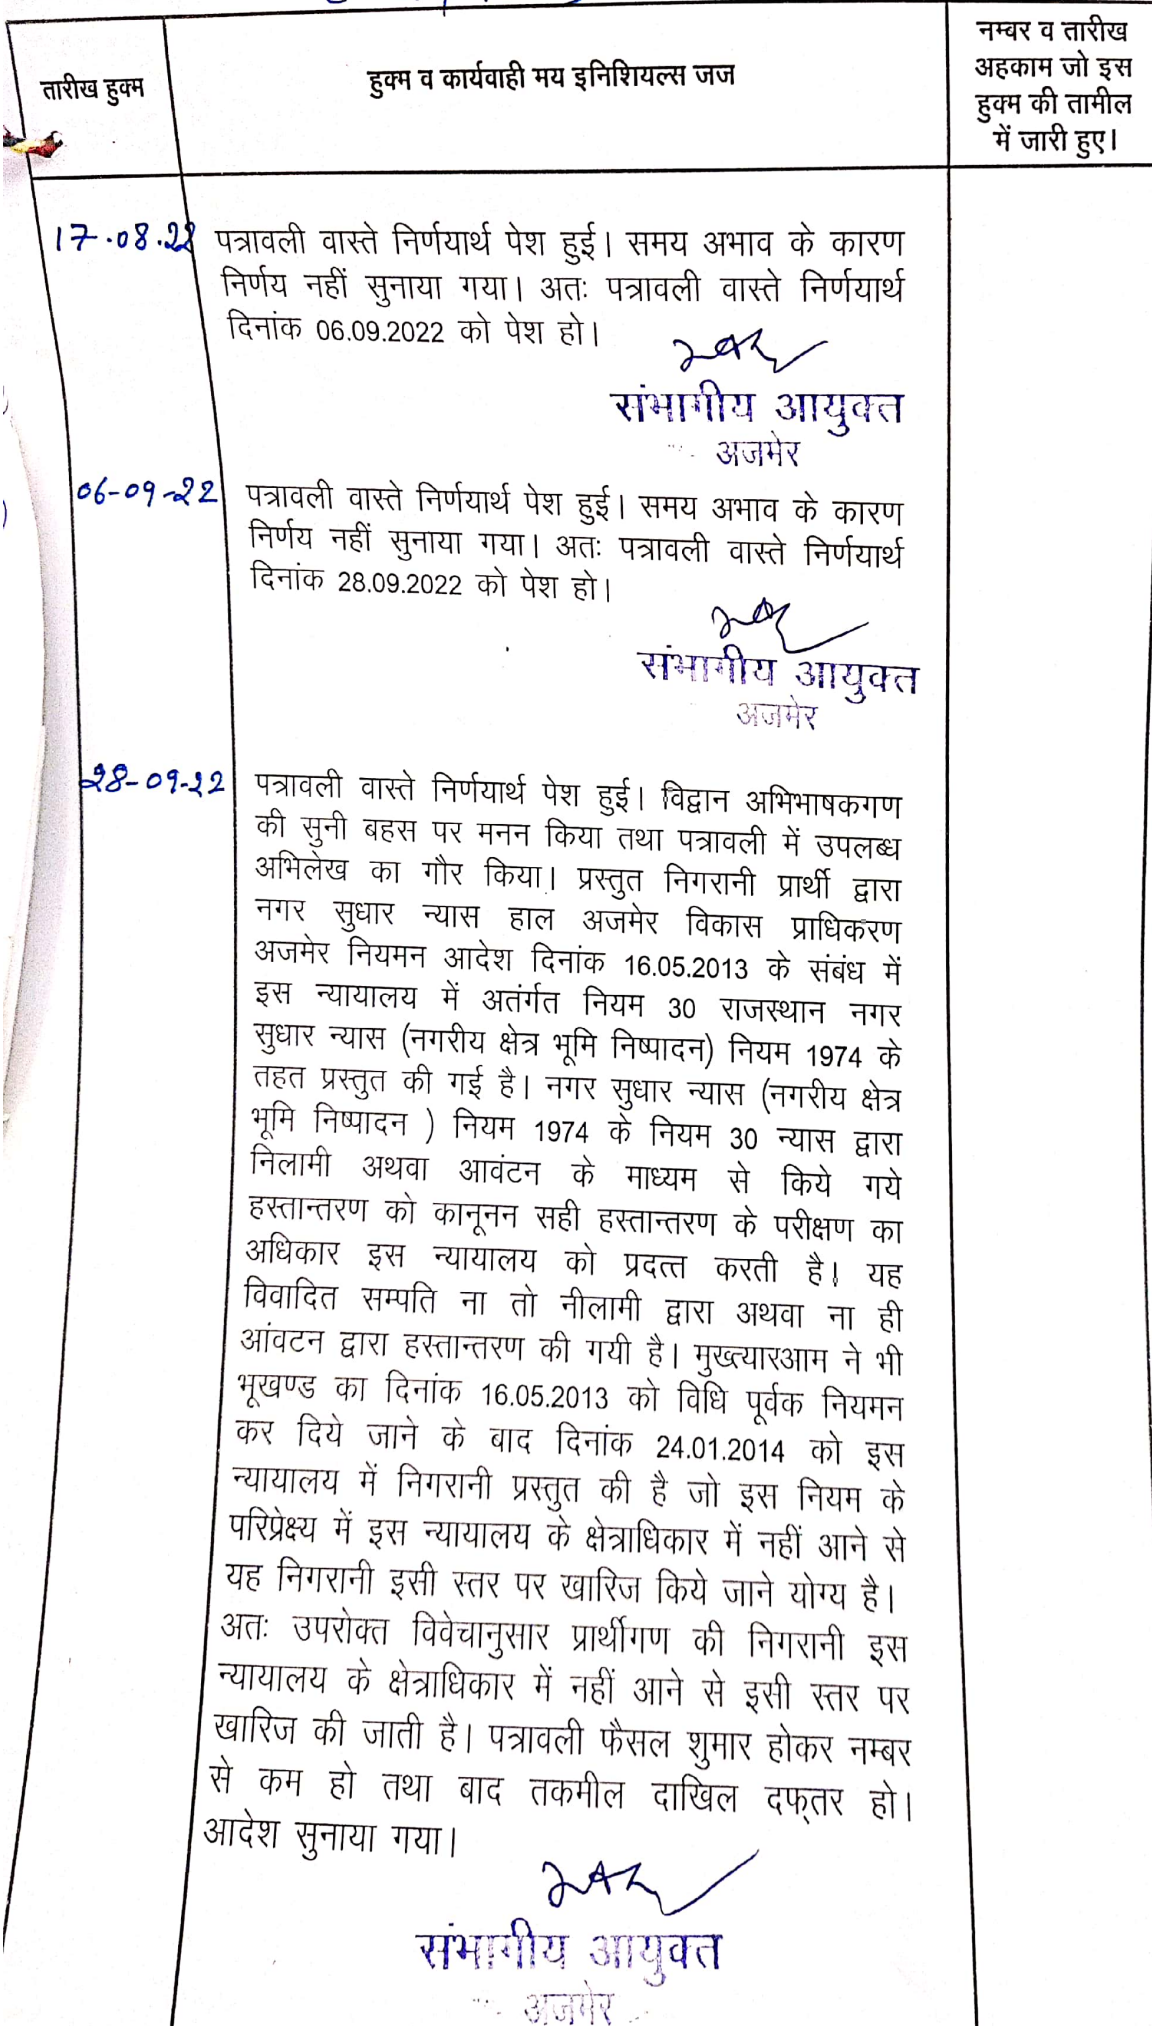 तारीख हुक्म
हुक्म व कार्यवाही मय इनिशियल्स जज
नम्बर व तारीख
अहकाम जो इस
हुक्म की तामील
में जारी हुए।
17.08.22
पत्रावली वास्ते निर्णयार्थ पेश हुई। समय अभाव के कारण
निर्णय नहीं सुनाया गया। अतः पत्रावली वास्ते निर्णयार्थ
दिनांक 06.09.2022 को पेश हो।
संभागीय आयुक्त
अजमेर
06-09-22
पत्रावली वास्ते निर्णयार्थ पेश हुई। समय अभाव के कारण
निर्णय नहीं सुनाया गया। अतः पत्रावली वास्ते निर्णयार्थ
दिनांक 28.09.2022 को पेश हो।
संभागीय आयुक्त
अजमेर
28-09-22
पत्रावली वास्ते निर्णयार्थ पेश हुई। विद्वान अभिभाषकगण
की सुनी बहस पर मनन किया तथा पत्रावली में उपलब्ध
अभिलेख का गौर किया। प्रस्तुत निगरानी प्रार्थी द्वारा
नगर सुधार न्यास हाल अजमेर विकास प्राधिकरण
अजमेर नियमन आदेश दिनांक 16.05.2013 के संबंध में
इस न्यायालय में अतंर्गत नियम 30 राजस्थान नगर
सुधार न्यास (नगरीय क्षेत्र भूमि निष्पादन) नियम 1974 के
तहत प्रस्तुत की गई है। नगर सुधार न्यास (नगरीय क्षेत्र
भूमि निष्पादन ) नियम 1974 के नियम 30 न्यास द्वारा
निलामी अथवा आवंटन के माध्यम से किये गये
हस्तान्तरण को कानूनन सही हस्तान्तरण के परीक्षण का
अधिकार इस न्यायालय को प्रदत्त करती है। यह
विवादित सम्पति ना तो नीलामी द्वारा अथवा ना ही
आंवटन द्वारा हस्तान्तरण की गयी है। मुख्त्यारआम ने भी
भूखण्ड का दिनांक 16.05.2013 को विधि पूर्वक नियमन
कर दिये जाने के बाद दिनांक 24.01.2014 को इस
न्यायालय में निगरानी प्रस्तुत की है जो इस नियम के
परिप्रेक्ष्य में इस न्यायालय के क्षेत्राधिकार में नहीं आने से
यह निगरानी इसी स्तर पर खारिज किये जाने योग्य है।
अतः उपरोक्त विवेचानुसार प्रार्थीगण की निगरानी इस
न्यायालय के क्षेत्राधिकार में नहीं आने से इसी स्तर पर
खारिज की जाती है। पत्रावली फैसल शुमार होकर नम्बर
से कम हो तथा बाद तकमील दाखिल दफ्तर हो।
आदेश सुनाया गया।
संभागीय आयुक्त
अजमेर